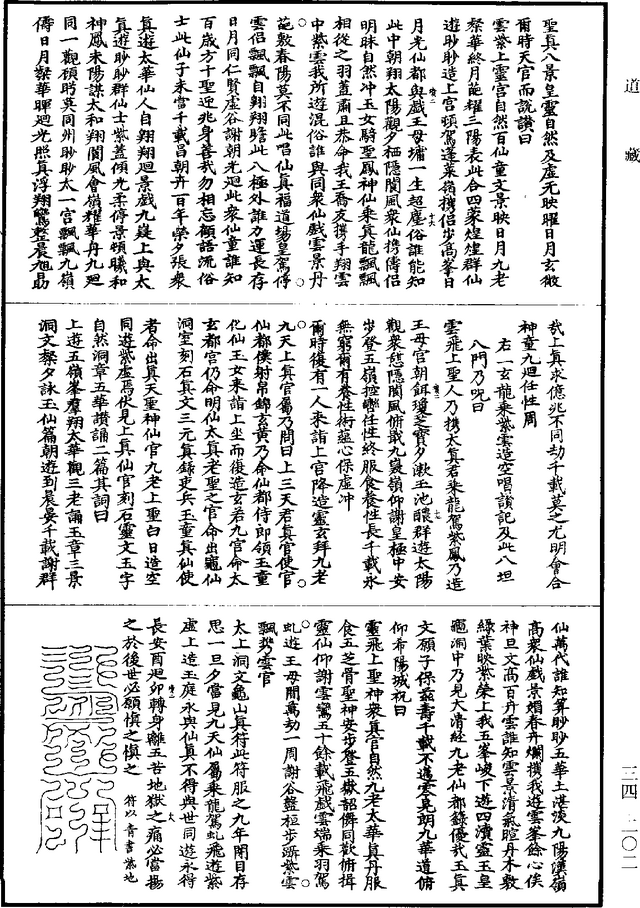 道藏
聖真八景皇靈自然及虛无映曜日月玄微
爾時天官而說讚曰
雲紫上靈宮自然百仙童文景映日月九老
粲華終月葩曜三陽表此合四衆煌煌群仙
遊眇眇造上宮頓駕蓬萊嶺携侶步高峯日
月光仙都與戲王母墉一生超塵俗誰能知
此中朝翔太陽觀夕栖隱閬風衆仙携儔侶
明昧自然冲玉女騎聖鳳神仙乘真龍飄飄
相從之羽蓋肅且恭命我王喬友携手翔雲
中紫雲我所遊混俗誰與同衆仙戲雲景丹
葩敷春陽莫不同此唱仙真福道場皇駕停
雲侶飄飄自翔翔瞻此八極外誰力運長存
日月同仁賢虛谷謝朝光迴此衆仙童誰知
百歲方十聖迎兆身善我勿相忘顧語流俗
士此仙子未當千載昌朝丹一百年榮夕張衆
真遊太華仙人自翔翔迴景戲九嶷上與太
真遊眇眇群仙士紫蓋傾九柔停景領曦和
神鳳來陽謀太和翔閬風會嶺耀華丹九迴
同一觀頎眄英同州眇眇太一宮飄飄九嶺
儔日月粲華暉迴光照真浮翔鸞整晨旭勗
哉上真求億兆不同劫千載莫之尤明會合
神童九迴任性周
右一玄龍乘紫雲造空唱讚記及此八坦
八門乃呪曰
雲飛上聖人乃携太真君乘龍駕紫鳳乃造
王母宮朝餌瓊之寶夕漱玉池醲群遊太陽
觀衆慈隱閬風俯戢九嶷嶺仰謝皇極中安
步登五嶺控轡任性終服食養性長千載永
無窮爾有養性術蘊心保虛冲
爾時復有一人來詣上宮降造靈玄拜九老
九天上真官屬乃問曰上三天君真官使官
仙都僕射帛錦玄黃乃命仙都侍郎領玉童
化仙玉女來詣上坐而復造玄若九官命太
玄都宮仍命明仙太真老聖之官命出龜仙
洞室刻石真文三元真錄吏兵玉童真仙使
者命出真天聖神仙官九老上聖白日造空
同遊紫虛焉伏見上真仙官刻石靈文玉字
自然洞章五華讃誦二篇其詞曰
上遊五嶺峯羣翔太華觀三老誦玉章三景
洞文粲夕詠玉仙篇朝遊到晨晏千載謝群
仙萬代誰知算眇眇五華土湛淡九陽漢嶺
高衆仙戲景媚春卉爛携我遊雲峯餘心俟
神旦文高百卉雲誰知雲景清氣暄丹木敷
緑葉映紫榮上我五峯峻下遊四瀆靈玉皇
龜洞中乃見大清經九老仙都錄優我玉真
文願子保茲壽千載不遑零見朗九華道俯
仰希陽城祝曰
靈飛上聖神衆真官自然九老太華真丹服
食五芝骨聖神安步登五嶽韶儕同歡俯揖
靈仙仰謝雲鸞五十餘載飛戲雲端乘羽駕
虬遊王母間萬劫一周謝谷盤桓步躋紫雲
飄携雲官
太上洞文龜山真符此符服之九年閉目存
思一旦夕當見九天仙屬乘龍駕虬飛遊紫
虛上造玉庭永與仙真不得與世同遊永得
長安酉迴卯轉身離五苦地獄之痛必當揚
之於後世必願慎之慎之
符以青書紫地
三四—二〇二